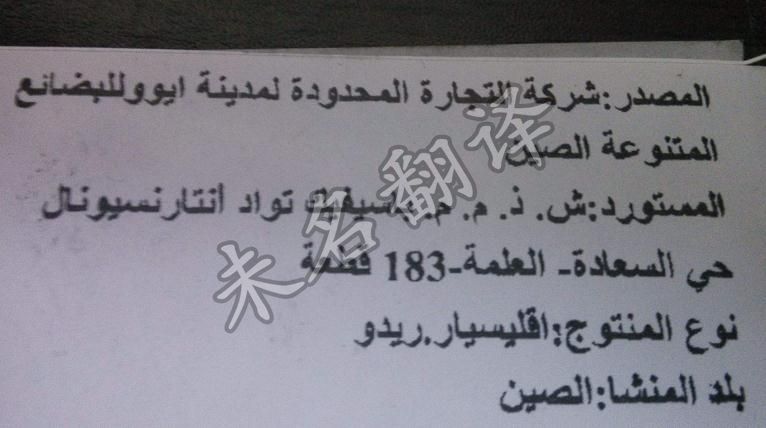 المصدر:شركة التجارة المحدودة لمدينة ايووللبضائع
المتنوعة الصين
المستورد:ش. ذ. م. م. تواد أنتارنسيونال
حي السعادة- العلمة-183 قطعة
نوع المنتوج:اقليسيار.ريدو
بلد المنشا:الصين
未名翻译